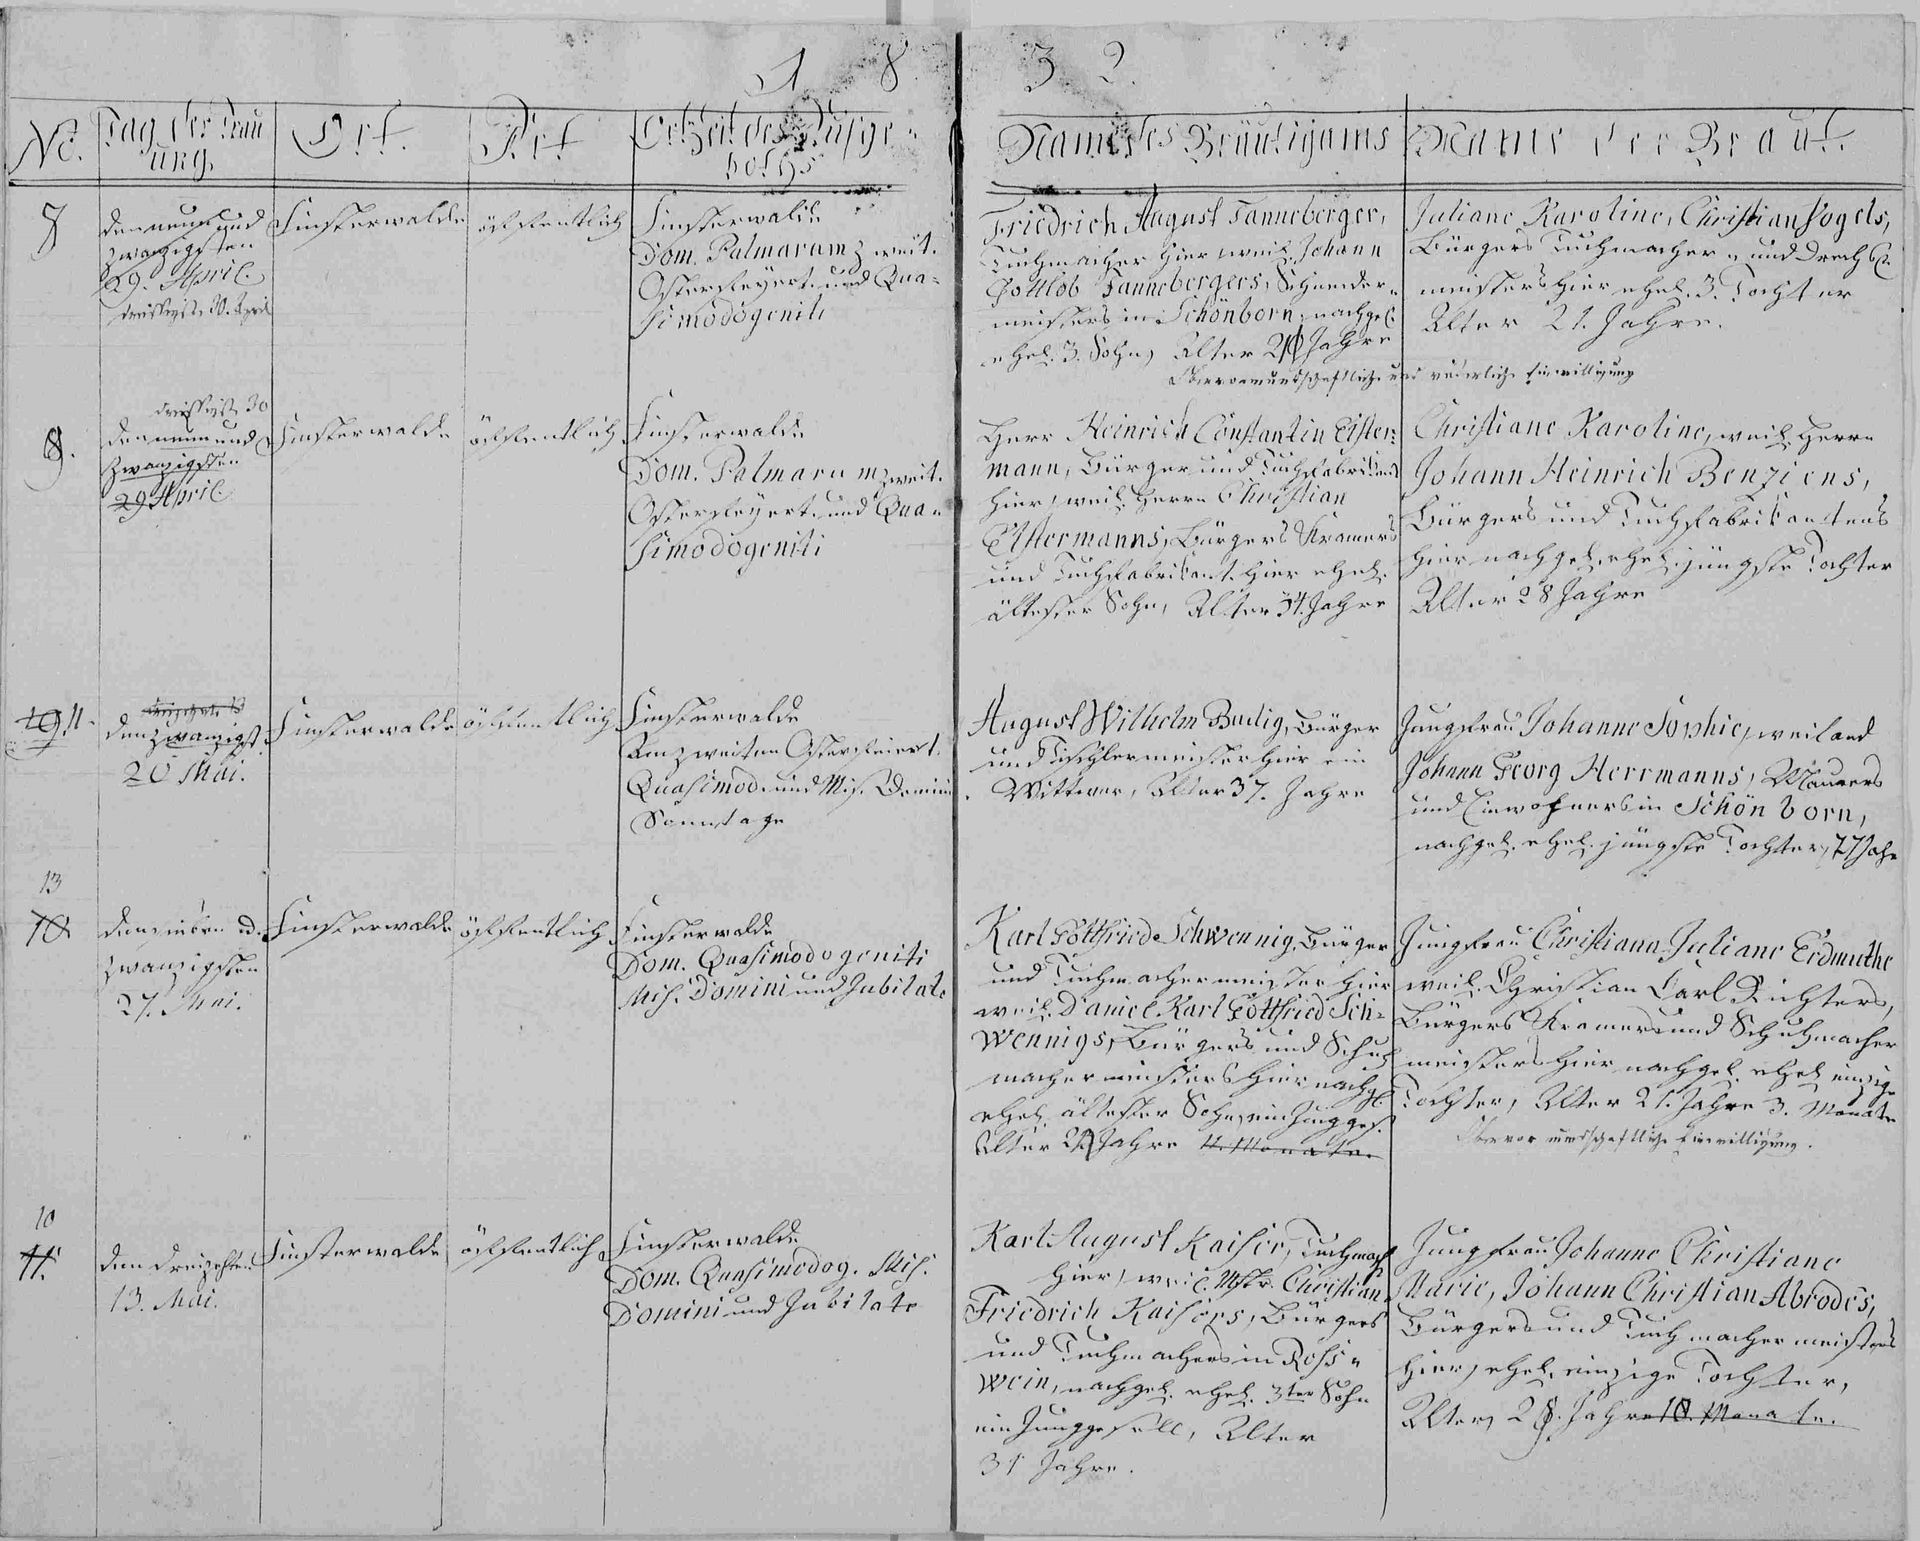 1 8 3 2.
No.
Tag der Trau
ung.
Ort.
Art
Ort Zeit des Aufge-
boths
Name des Bräutigams
Name der Braut.
8
den neun und
zwanzigsten
29. April
dreissigst. 30. April
Finsterwalde
öffentlich
Finsterwalde
Dom. Palmarum zweit.
Osterfeyert. und Qua-
simodogeniti
Friedrich August Tanneberger,
Tuchmacher hier, weil. Johann
Gottlob Tannebergers, Schneider-
meisters in Schönborn, nachgel.
ehel. 3. Sohn, Alter Jahre
Juliane Karoline, Christian Vogels,
Bürgers Tuchmacher- und
meisters hier ehel. 3. Tochter
Alter 21. Jahre.
Obervormundschaftliche und väterliche Einwilligung
9.
dreissigst. 30
den neun und
zwanzigsten
29 April
Finsterwalde
öffentlich
Finsterwalde
Dom. Palmarum zweit.
Osterfeyert. und Qua-
simodogeniti
Herr Heinrich Constantin Elster-
mann, Bürger und Tuchfabrikant
hier, weil. Herrn Christian
Elstermanns, Bürgers Kramers
und Tuchfabrikant. hier ehel.
ältester Sohn, Alter 34. Jahre
Christiane Karoline, weil. Herrn
Johann Heinrich Benziens,
Bürgers und Tuchfabrikantens
hier nachgel. ehel. jüngste Tochter
Alter 28 Jahre
11.
den zwanzigst.
20 Mai.
Finsterwalde
öffentlich
Finsterwalde
Am zweiten Osterfeiert.
Quasimod. und Mis. Domini
Sonntage
August Wilhelm Budig, Bürger
und Tischlermeister hier ein
Wittwer, Alter 37. Jahre
Jungfrau Johanne Sophie, weiland
Johann Georg Herrmanns, Maurers
und Einwohners in Schönborn,
nachgel. ehel. jüngste Tochter, 27 Jahr
13
10
den sieben u.
zwanzigsten
27. Mai.
Finsterwalde
öffentlich
Finsterwalde
Dom. Quasimodogeniti
Mis. Domini und Jubilate
Karl Gottfried Schwennig, Bürger
und Tuchmachermeister hier
weil. Daniel Karl Gottfried Sch-
wennigs, Bürgers und Schuh
machermeisters hier nachgl.
ehel. ältester Sohn, ein Jungges.
Alter Jahre 11. Monate.
Jungfrau Christiana Juliane Erdmuthe
weil. Christian Carl Richters,
Bürgers Kramers und Schuhmacher
meisters hier nachgel. ehel. einzige
Tochter, Alter 21. Jahre 3. Monate
Obervormundschaftliche Einwilligung.
10
11.
den dreizehnten
13. Mai.
Finsterwalde
öffentlich
Finsterwalde
Dom. Quasimodog. Mis.
Domini und Jubilate
Karl August Kaiser, Tuchmach.
hier, weil. Mstr. Christian
Friedrich Kaisers, Bürgers
und Tuchmachers in Ross-
wein, nachgel. ehel. 3ter Sohn
ein Junggesell, Alter
31 Jahre.
Jungfrau Johanne Christiane
Marie, Johann Christian Abrodes,
Bürgers und Tuchmachermeisters
hier, ehel. einzige Tochter,
Alter, 28. Jahre 10. Monate.